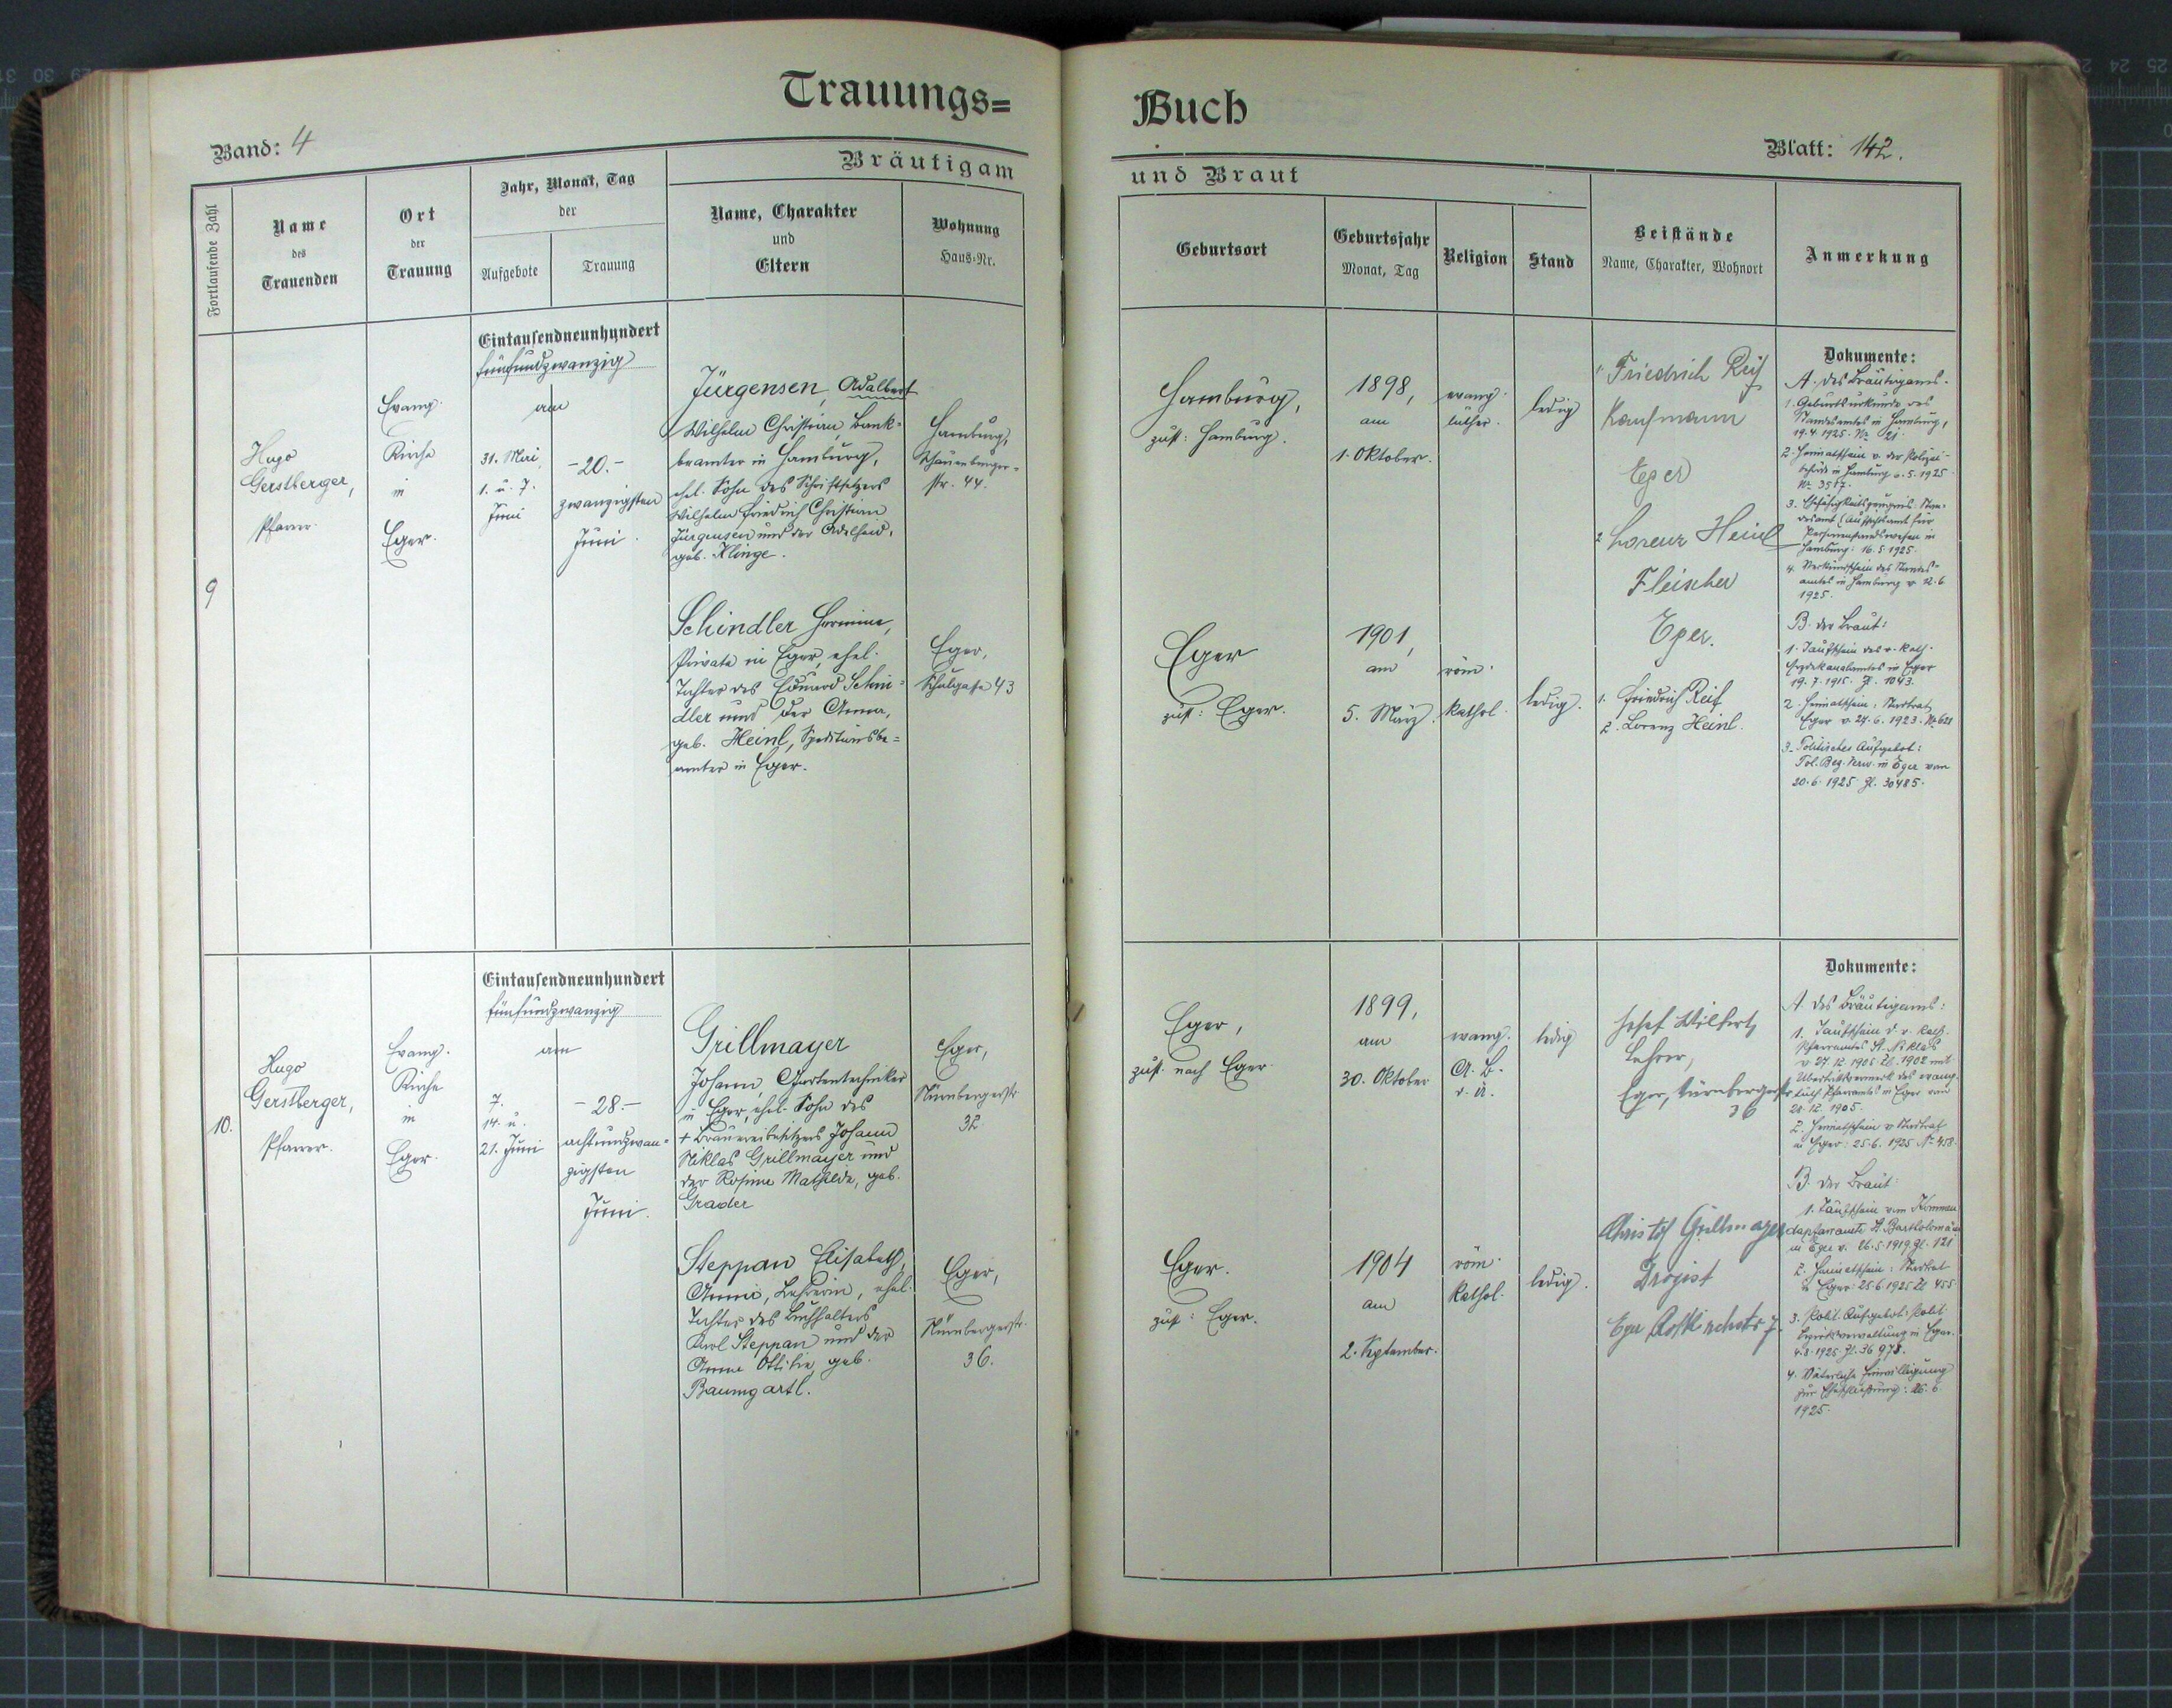 Trauungs=
Buch
Band: 4
Blatt: 142.
Bräutigam
und Braut
Fortlaufende Zahl
Name
des
Trauenden
Ort
der
Trauung
Jahr, Monat, Tag
der
Aufgebote
Trauung
Name, Charakter
und
Eltern
Wohnung
Haus-Nr.
Geburtsort
Geburtsjahr
Monat, Tag
Religion
Stand
Beistände
Name, Charakter, Wohnort
Anmerkung
9
Hugo
Gerstberger,
Pfarrer.
Evang.
Kirche
in
Eger.
Eintausendneunhundert
fünfundzwanzig
am
31. Mai,
1. u. 7.
Juni
-20.-
zwanzigsten
Juni.
Jürgensen, Adalbert
Wilhelm Christian, Bank=
beamter in Hamburg,
ehel. Sohn des Schriftsetzers
Wilhelm Friedrich Christian
Jürgensen und der Adelheid,
geb. Klinge.
Hamburg,
Schauenburger=
str. 44.
Hamburg,
zust: Hamburg.
1898,
am
1. Oktober.
evang.
luther.
ledig
1. Friedrich Reif
Kaufmann
Eger
2 Lorenz Heinl
Fleischer
Eger.
Dokumente:
A. des Bräutigams.
1. Geburtsurkunde des
Standesamtes in Hamburg,
19.4.1925. Nr. 21.
2. Heimatschein v. der Polizei=
behörde in Hamburg 6.5.1925
Nr. 3517.
3. Ehefähigkeitszeugnis. Stan=
desamt (Aufsichtsamt für
Personenstandswesen in
Hamburg: 16.5.1925.
4. Verkündschein des Standes=
amtes in Hamburg v. 12.6
1925.
Schindler Hermine,
Private in Eger, ehel.
Tochter des Eduard Schin=
dler und der Anna,
geb. Heinl, Speditionsbe=
amter in Eger.
Eger,
Schulgasse 43
Eger
zust: Eger.
1901,
am
5. März.
röm.
kathol.
ledig.
1. Friedrich Reif
2. Lorenz Heinl.
B. der Braut:
1. Taufschein des r. kath.
Erzdekanalamtes in Eger
19.7.1915. Zl. 1043.
2. Heimatschein, Stadtrat
Eger v. 24.6.1923. Nr 621
3. Politisches Aufgebot:
Pol. Bez. Verw. in Eger vom
20.6.1925 Zl. 30485.
10.
Hugo
Gerstberger,
Pfarrer.
Evang.
Kirche
in
Eger.
Eintausendneunhundert
fünfundzwanzig
am
7.
14. u.
21. Juni
-28.-
achtundzwan=
zigsten
Juni.
Grillmayer
Johann, Gartentechniker
in Eger, ehel. Sohn des
+ Brauereibesitzers Johann
Niklas Grillmayer und
der Rosine Mathilde, geb.
Grader
Eger,
Nürnbergerstr.
32.
Eger,
zust. nach Eger
1899,
am
30. Oktober
evang.
A. B.
ledig
Josef Wilfert,
Lehrer,
Eger, Nürnbergerstr
36
Dokumente:
A. des Bräutigams:
1. Taufschein d. r. kath.
Pfarramtes St. Niklas
v. 27.12.1905 Zl. 1902 mit
Übertrittsvermerk des evang.
luth. Pfarramts in Eger vom
28.12.1905.
2. Heimatschein v. Stadtrat
in Eger: 25.6.1925 Nr 458.
Steppan Elisabeth,
Anna, Lehrerin, ehel.
Tochter des Buchhalters
Karl Steppan und der
Anna Ottilie, geb.
Baumgartl.
Eger,
Nürnbergerstr.
36.
Eger.
zust: Eger.
1904
am
2. September.
röm.
kathol.
ledig.
Christof Grillmayer
Drogist
Eger
B. der Braut:
1. Taufschein vom Kommen
dapfarramte St. Bartholomäus
in Eger v. 26.5.1919. Zl. 121
2. Heimatschein: Stadtrat
in Eger: 25.6.1925 Zl. 455
3. Polit. Aufgebot: Polit.
Bezirksverwaltung in Eger.
4.8.1925. Zl. 36978.
4. Väterliche Einwilligung
zur Eheschließung: 26.6.
1925.